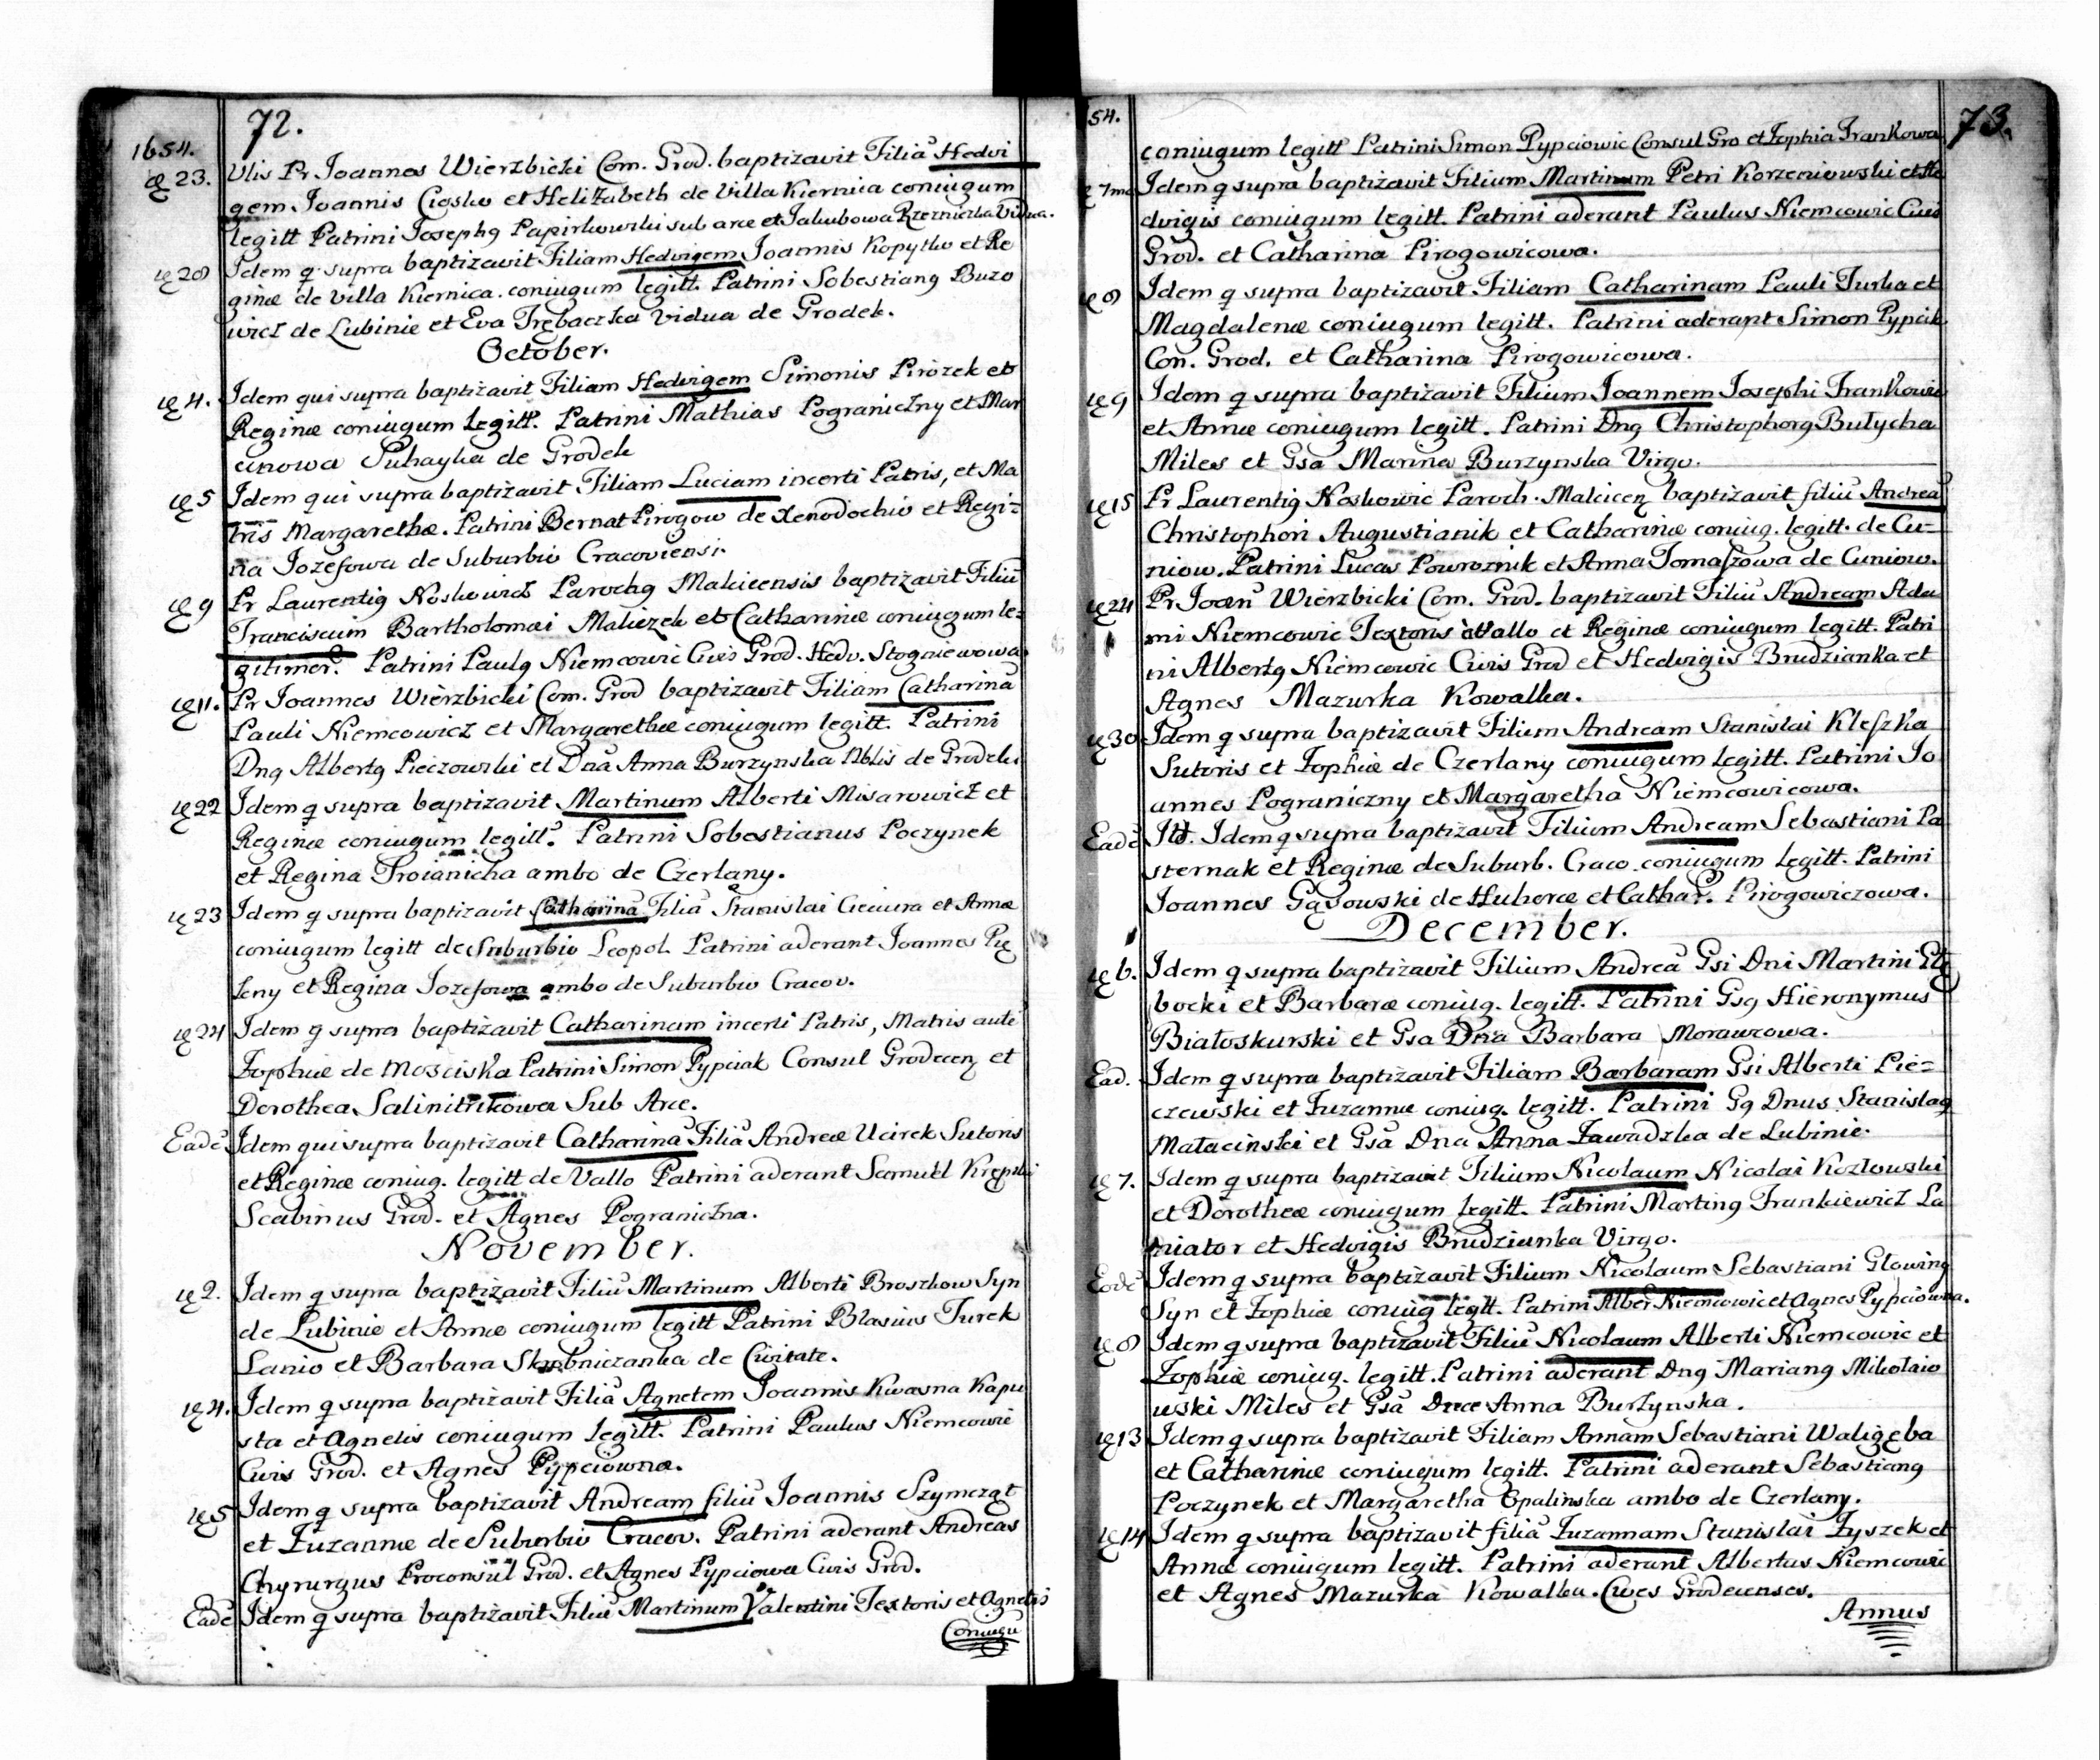 72.
1654.
Vlis Pr Joannes Wierzbicki Com. Grod. baptizavit Filiā Hedvi
23. gem Joannis Ciosko et Helizabeth de Villa Kiernica coniugum
legitt Patrini Josephg Papirkowski sub arce et Jakubowa Rzeznicka Vidua.
28 Idem q supra baptizavit Filiam Hedvigem Joannis Kopytko et Re
ginæ de villa Kiernica coniugum legitt. Patrini Sobestiang Buzo
wicz de Lubinie et Eva Trębaczka Vidua de Grodek.
October.
4. Idem qui supra baptizavit Filiam Hedvigem Simonis Pirozek et
Reginæ coniugum legitt. Patrini Mathias Pograniczny et Mar
cinowa Puhayka de Grodek
5 Idem qui supra baptizavit Filiam Luciam incerti Patris, et Ma
tris Margarethæ. Patrini Bernat Pirogow de Xenodochio et Regi-
na Jozefowa de Suburbio Cracoviensi.
9 Pr Laurentig Noskowicz Parochg Malcicensis baptizavit Filiū
Franciscum Bartholomæi Maliczek et Catharinæ coniugum le-
gitimor. Patrini Paulg Niemcowic Civis Grod. Hedv. Stogniewowa
11. Pr Joannes Wierzbicki Com. Grod baptizavit Filiam Catharinā
Pauli Niemcowicz et Margarethæ coniugum legitt. Patrini
Dng Albertg Pieczowski et Dna Anna Burzynska Nblis de Grodek
22 Idem q supra baptizavit Martinum Alberti Misarowicz et
Reginæ coniugum legitt. Patrini Sobestianus Poczynek
et Regina Troianicha ambo de Czerlany.
23 Idem q supra baptizavit Catharinā Filiā Stanislai Cieciura et Annæ
coniugum legitt de Suburbio Leopol. Patrini aderant Joannes Pię
leny et Regina Jozefowa ambo de Suburbio Cracov.
24 Idem q supra baptizavit Catharinam incerti Patris, Matris autē
Zophiæ de Mosciska Patrini Simon Pypciak Consul Grodecen et
Dorothea Salinitrikowa Sub Arce.
Eadē Idem qui supra baptizavit Catharinā Filiā Andreæ Ucirek Sutoris
et Reginæ coniug. legitt de Vallo Patrini aderant Samuel Krępski
Scabinus Grod. et Agnes Pograniczna.
November.
2. Idem q supra baptizavit Filiū Martinum Alberti Broszkow Syn
de Lubinie et Annæ coniugum legitt Patrini Blasius Turek
Lanio et Barbara Skrobniczanka de Civitate.
4. Idem q supra baptizavit Filiā Agnetem Joannis Kwasna Kapu
sta et Agnetis coniugum legitt. Patrini Paulus Niemcowic
Civis Grod. et Agnes Pypciowna.
5 Idem q supra baptizavit Andream filiū Joannis Szymczat
et Zuzannæ de Suburbio Cracov. Patrini aderant Andreas
Chyrurgus Proconsul Grod. et Agnes Pypciowa Civis Grod.
Eadē Idem q supra baptizavit Filiū Martinum Valentini Textoris et Agnetis
Coniugū
54.
73.
coniugum legitt Patrini Simon Pypciowic Consul Gro et Zophia Frankowa
7mo Idem q supra baptizavit Filium Martinum Petri Korzeniowski et He
dvigis coniugum legitt. Patrini aderant Paulus Niemcowic Civis
Grod. et Catharina Pirogowicowa.
8 Idem q supra baptizavit Filiam Catharinam Pauli Turka et
Magdalenæ coniugum legitt. Patrini aderant Simon Pypcik
Con. Grod. et Catharina Pirogowicowa.
9 Idem q supra baptizavit Filium Joannem Josephi Frankowic
et Annæ coniugum legitt. Patrini Dng Christophorg Bułycha
Miles et Gsa Marina Burzynska Virgo.
15 Pr Laurentig Noskowic Paroch. Malcicen baptizavit filiū Andreā
Christophori Augustianik et Catharinæ coniug. legitt. de Cu-
niow. Patrini Lucas Powroznik et Anna Tomaszowa de Cuniow.
24 Pr Joan Wierzbicki Com. Grod. baptizavit Filiū Andream Ada
mi Niemcowic Textoris a Vallo et Reginæ coniugum legitt. Patri
ni Albertg Niemcowic Civis Grod et Hedvigis Brudzianka et
Agnes Mazurka Kowalka.
30 Idem q supra baptizavit Filium Andream Stanislai Kleszka
Sutoris et Zophiæ de Czerlany coniugum legitt. Patrini Jo
annes Pograniczny et Margaretha Niemcowicowa.
Eadē Itt. Idem q supra baptizavit Filium Andream Sebastiani Pa
sternak et Reginæ de Suburb. Craco. coniugum legitt. Patrini
Joannes Gąsowski de Huberce et Cathar. Pirogowiczowa.
December.
6. Idem q supra baptizavit Filium Andreā Gsi Dni Martini Głę
bocki et Barbaræ coniug. legitt. Patrini Gsg Hieronymus
Białoskurski et Gsa Dna Barbara Morawcowa.
Ead. Idem q supra baptizavit Filiam Barbaram Gsi Alberti Pie-
czewski et Zuzannæ coniug. legitt. Patrini Gg Dnus Stanislag
Małacinski et Gsa Dna Anna Zawadzka de Lubinie.
7. Idem q supra baptizavit Filium Nicolaum Nicolai Kozłowski
et Dorotheæ coniugum legitt. Patrini Marting Frankiewicz La
niator et Hedvigis Brudzianka Virgo.
Eodē Idem q supra baptizavit Filium Nicolaum Sebastiani Glowing
Syn et Zophiæ coniug legitt. Patrini Alber Niemcowic et Agnes Pypciowna.
8 Idem q supra baptizavit Filiū Nicolaum Alberti Niemcowic et
Zophiæ coniug. legitt. Patrini aderant Dng Mariang Mikołaio
wski Miles et Gsa Dnæ Anna Burzynska.
13 Idem q supra baptizavit Filiam Annam Sebastiani Waligęba
et Catharinæ coniugum legitt. Patrini aderant Sebastiang
Poczynek et Margaretha Opalinska ambo de Czerlany.
14 Idem q supra baptizavit filiā Zuzannam Stanislai Zyszek et
Annæ coniugum legitt. Patrini aderant Albertus Niemcowic
et Agnes Mazurka Kowalka. Cives Grodecenses.
Annus